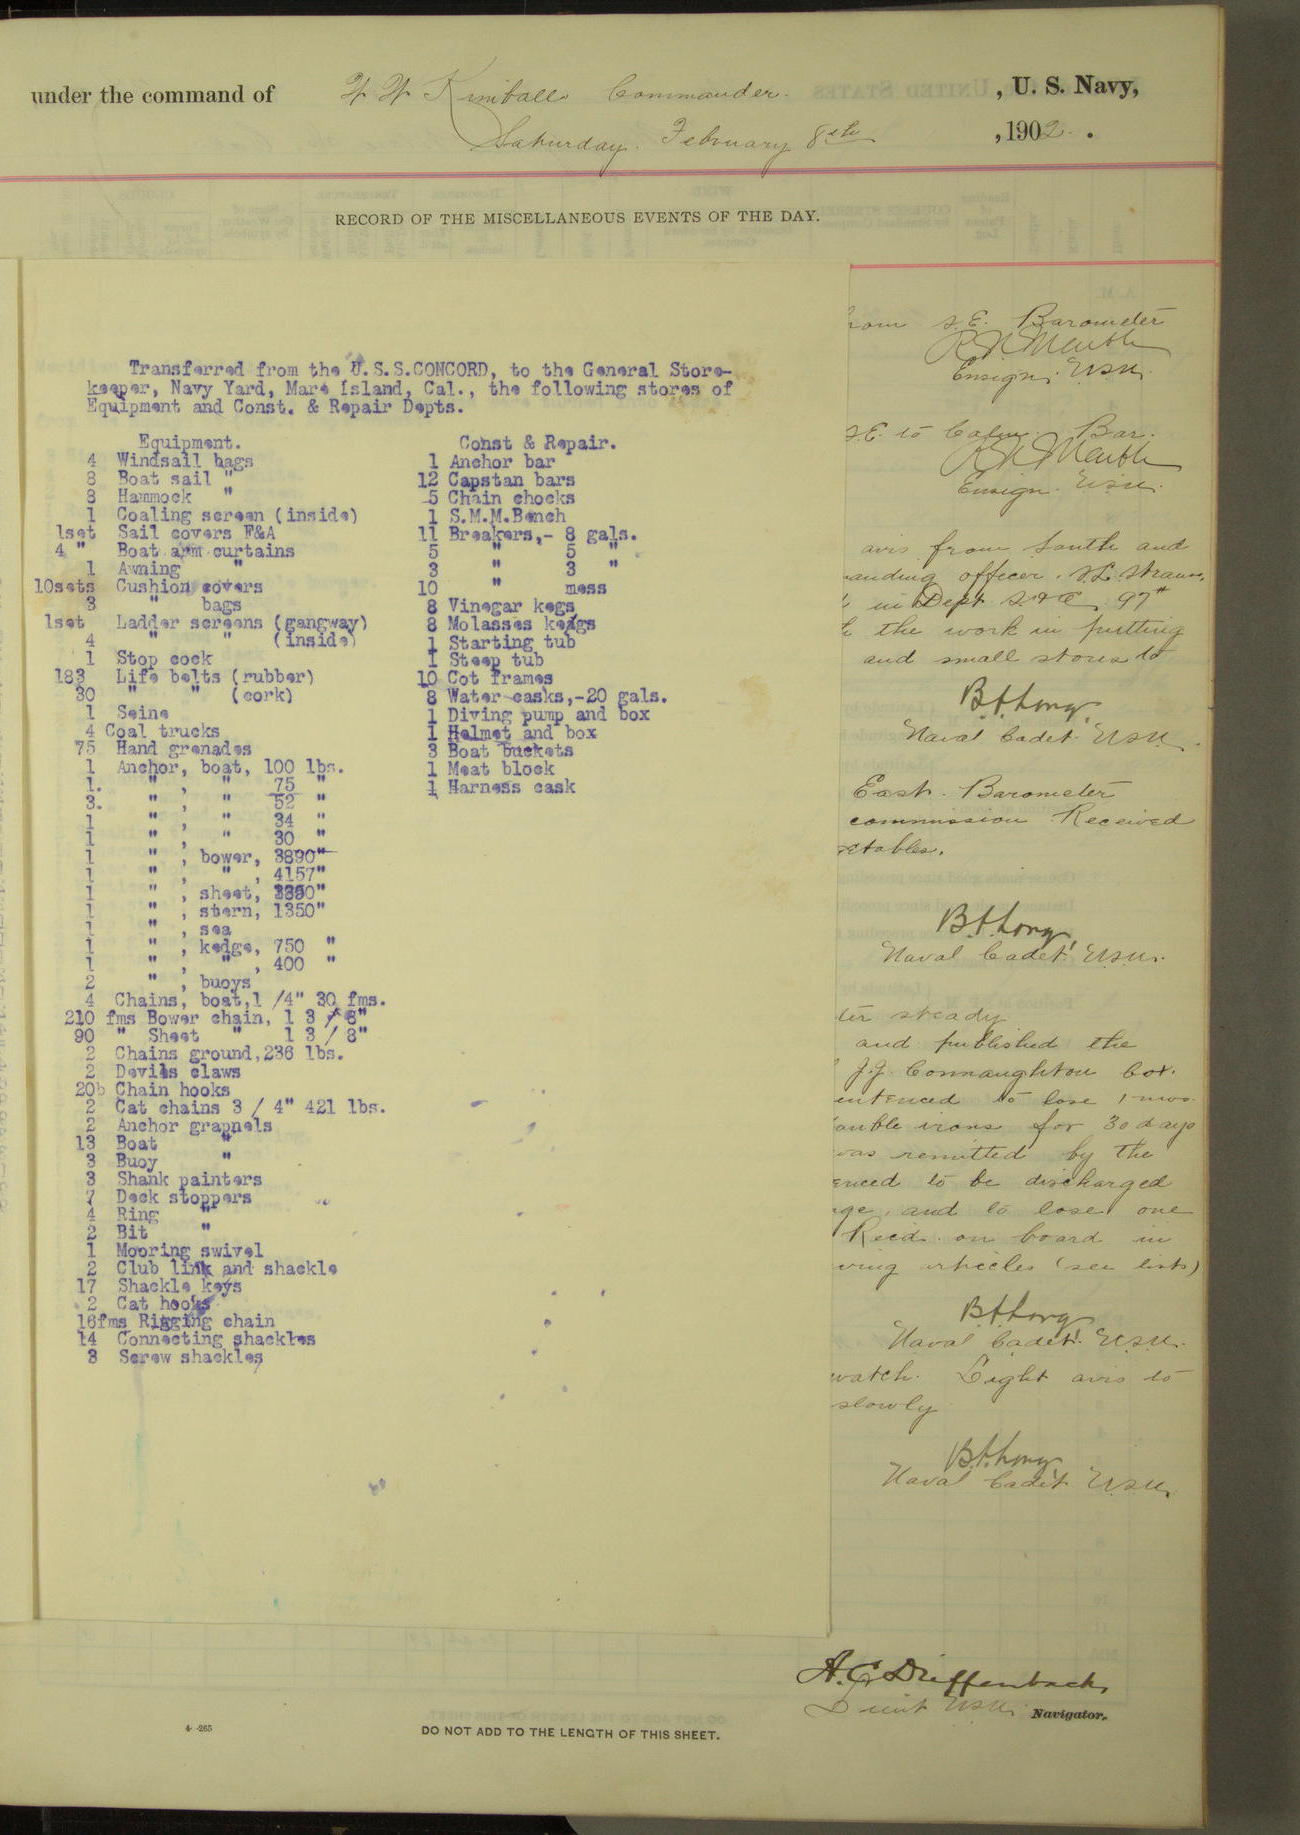 under the command of W. W. Kimball Commander. , U. S. Navy,
Saturday. February 8th , 1902 .
RECORD OF THE MISCELLANEOUS EVENTS OF THE DAY.
Transferred from the U.S.S.CONCORD, to the General Store-
keeper, Navy Yard, Mare Island, Cal., the following stores of
Equipment and Const. & Repair Depts.
Equipment.
4 Windsail bags
8 Boat sail "
8 Hammock "
1 Coaling screen (inside)
1set Sail covers F&A
4 " Boat awn curtains
1 Awning "
10sets Cushion covers
3 " bags
1set Ladder screens (gangway)
4 " " (inside)
1 Stop cock
183 Life belts (rubber)
30 " " (cork)
1 Seine
4 Coal trucks
75 Hand grenades
1 Anchor, boat, 100 lbs.
1. " , " 75 "
3. " , " 52 "
1 " , " 34 "
1 " , " 30 "
1 " , bower, 3890"
1 " , " , 4157"
1 " , sheet,
1 " , stern, 1350"
1 " , sea
1 " , kedge, 750 "
1 " , " , 400 "
2 " , buoys
4 Chains, boat,1 /4" 30 fms.
210 fms Bower chain, 1 3 / 8"
90 " Sheet " 1 3 / 8"
2 Chains ground,236 lbs.
2 Devils claws
20 Chain hooks
2 Cat chains 3 / 4" 421 lbs.
2 Anchor grapnels
13 Boat "
3 Buoy "
3 Shank painters
7 Deck stoppers
4 Ring "
2 Bit "
1 Mooring swivel
2 Club link and shackle
17 Shackle keys
2 Cat hooks
16fms Rigging chain
14 Connecting shackles
3 Screw shackles
Const & Repair.
1 Anchor bar
12 Capstan bars
5 Chain chocks
1 S.M.M.Bench
11 Breakers,- 8 gals.
5 " 5 "
3 " 3 "
10 " mess
8 Vinegar kegs
8 Molasses kegs
1 Starting tub
1 Steep tub
10 Cot frames
8 Water casks,-20 gals.
1 Diving pump and box
1 Helmet and box
3 Boat buckets
1 Meat block
1 Harness cask
from S.E. Barometer
Ensign. U.S.N.
S.E. to Calm. Bar.
Ensign. U.S.N.
airs from South and
officer.
in Dept S & A. 97#
the work in putting
and small stores to
B.A. Long,
Naval Cadet. U.S.N.
East. Barometer
commission. Received
B.A. Long,
Naval Cadet. U.S.N.
steady
and published the
J.J. Connaughton Cox.
to lose 1 mos.
irons for 30 days
was remitted by the
to be discharged
and to lose one
Rec'd. on board in
articles (see lists)
B.A. Long,
Naval Cadet. U.S.N.
watch. Light airs to
slowly
B.A. Long,
Naval Cadet U.S.N.
A. C. Dieffenbach,
Lieut U.S.N. Navigator.
4—265
DO NOT ADD TO THE LENGTH OF THIS SHEET.